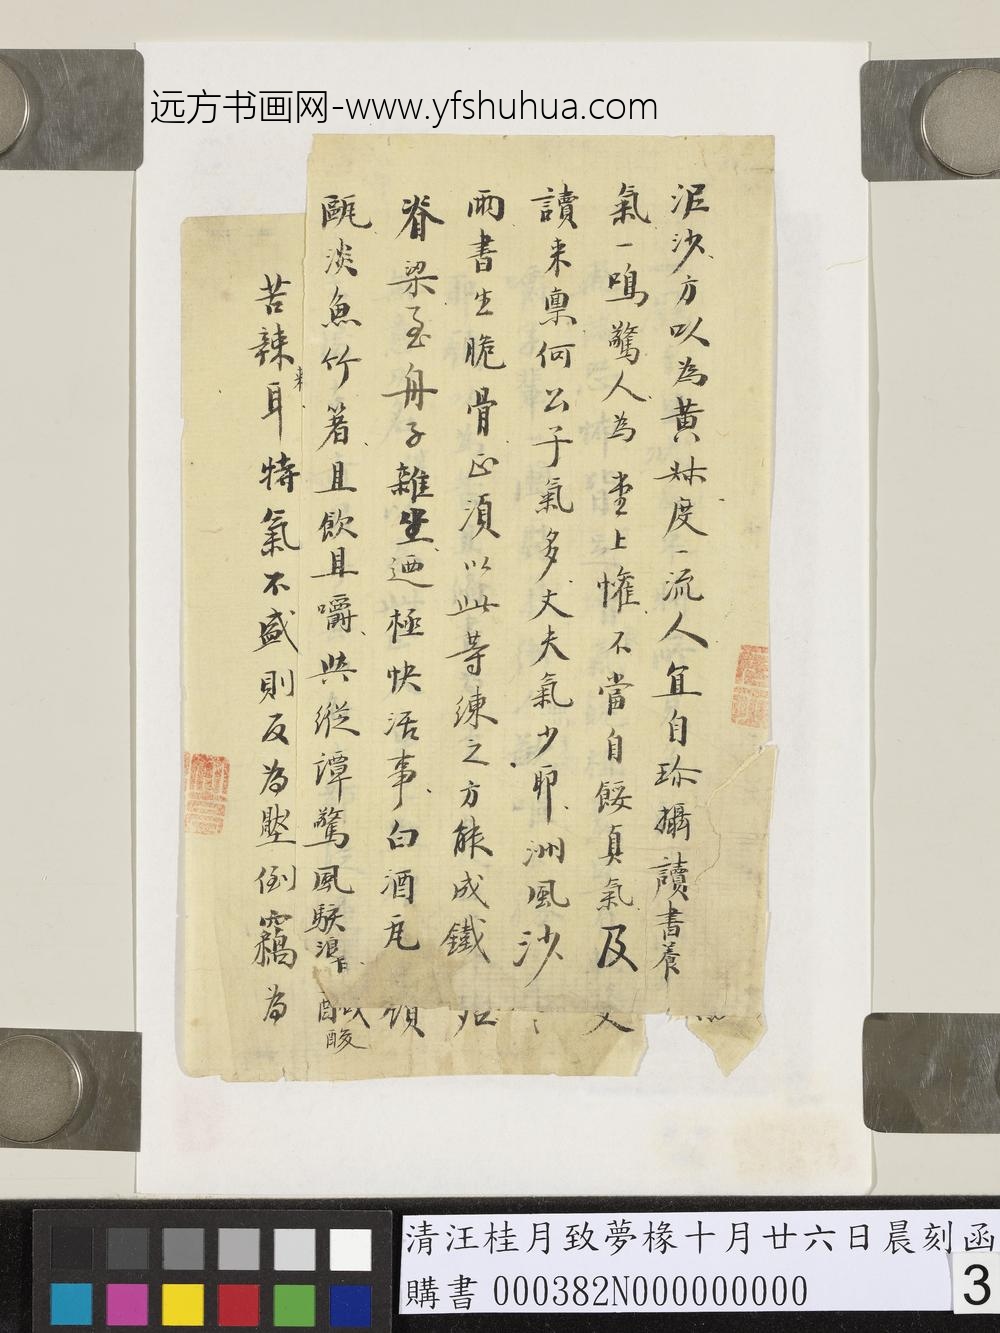 远方书画网-www.yfshuhua.com
泥沙方以為黃叔度一流人宜自珍攝讀書養
氣一鳴驚人為堂上懽不當自餒真氣及
讀來稟何公子氣多丈夫氣少耶洲風沙
雨書生脆骨正須以此等練之方能成鐵
脊梁至舟子雜坐迺極快活事白酒瓦
甌淡魚竹箸且飲且嚼與縱譚驚風駭浪
酸
苦辣耳特氣不盛則反為壓倒竊為
清汪桂月致夢椽十月廿六日晨刻函
購書 000382N000000000
3